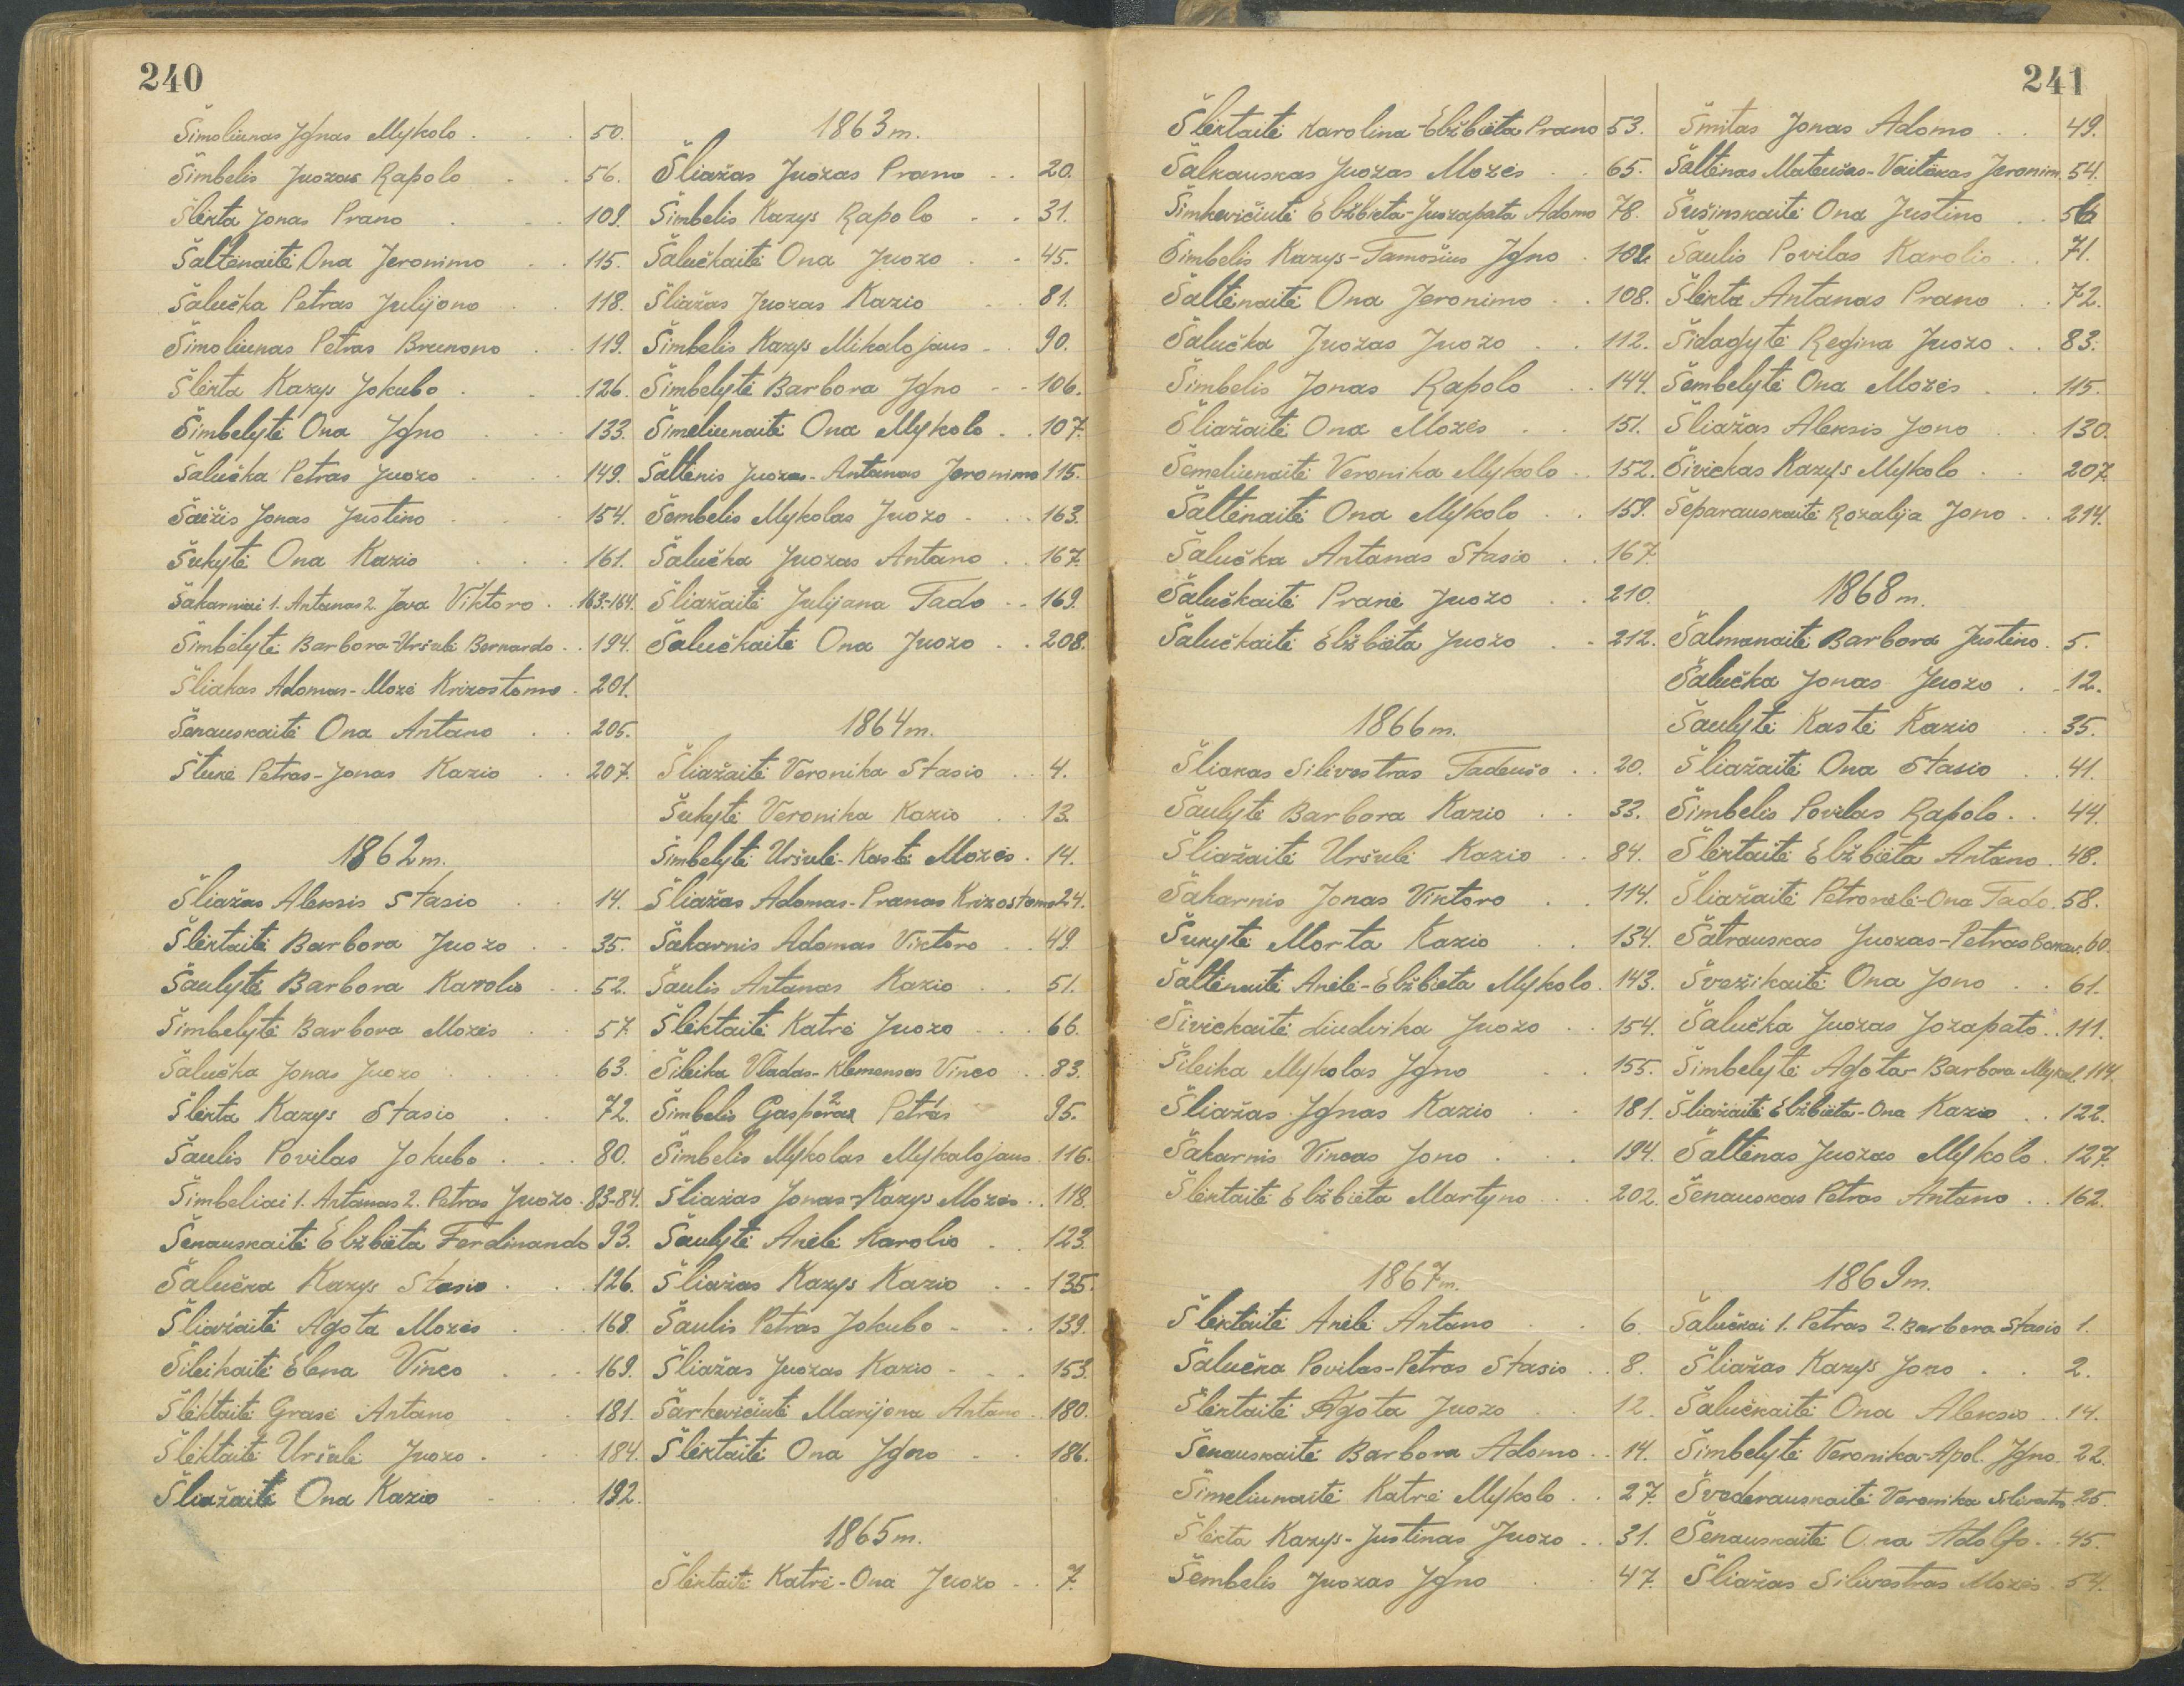 240
Šimoliunas Ignas Mykolo . . . 50.
Šimbelis Juozas Rapolo . . 56.
Šlekta Jonas Prano . . . 109.
Šaltenaitė Ona Jeronimo . . 115.
Šalučka Petras Julijono . . 118.
Šimoliunas Petras Brunono . . 119.
Šlekta Kazys Jokubo . . . 126.
Šimbelytė Ona Igno . . . 133.
Šalučka Petras Juozo . . . 149.
Šaižis Jonas Justino . . . 154.
Šukytė Ona Kazio . . . 161.
Šakarniai 1. Antanas 2. Jeva Viktoro . . 163-164.
Šimbelytė Barbora-Uršulė Bernardo . . 194.
Šliakas Adomas-Mozė Krizostomo . 201.
Šenauskaitė Ona Antano . . 205.
Šturė Petras-Jonas Kazio . . 207.
1862 m.
Šliažas Aleksis Stasio . . 14.
Šlektaitė Barbora Juozo . . 35.
Šaulytė Barbora Karolio . . 52.
Šimbelytė Barbora Mozės . . 57.
Šalučka Jonas Juozo . . . 63.
Šlekta Kazys Stasio . . . 72.
Šaulis Povilas Jokubo . . . 80.
Šimbeliai 1. Antanas 2. Petras Juozo . 83-84.
Šenauskaitė Elžbieta Ferdinando 93.
Šalučka Kazys Stasio . . . 126.
Šliažaitė Agota Mozės . . . 168.
Šileikaitė Elena Vinco . . . 169.
Šlektaitė Grasė Antano . . 181.
Šlektaitė Uršulė Juozo . . . 184.
Šliažaitė Ona Kazio . . . 192.
1863 m.
Šliažas Juozas Prano . . 20.
Šimbelis Kazys Rapolo . . 31.
Šalučkaitė Ona Juozo . . 45.
Šliažas Juozas Kazio . . 81.
Šimbelis Kazys Mikalojaus . . 90.
Šimbelytė Barbora Igno . . 106.
Šimeliunaitė Ona Mykolo . . 107.
Šaltenis Juozas-Antanas Jeronimo 115.
Šembelis Mykolas Juozo . . . 163.
Šalučka Juozas Antano . . 167.
Šliažaitė Julijana Tado . . 169.
Šalučkaitė Ona Juozo . . 208.
1864 m.
Šliažaitė Veronika Stasio . . 4.
Šukytė Veronika Kazio . . 13.
Šimbelytė Uršulė-Kastė Mozės . 14.
Šliažas Adomas-Pranas Krizostomo 24.
Šakarnis Adomas Viktoro . . 49.
Šaulis Antanas Kazio . . 51.
Šlektaitė Katrė Juozo . . . 66.
Šileika Vladas-Klemensas Vinco . . 83.
Šimbelis Gasparas 2 Petras 95.
Šimbelis Mykolas Mykalojaus . 116.
Šliažas Jonas-Kazys Mozės . . 118.
Šaulytė Anelė Karolio . . 123.
Šliažas Kazys Kazio . . 135.
Šaulis Petras Jokubo . . . 139.
Šliažas Juozas Kazio . . . 153.
Šarkevičiutė Marijona Antano . 180.
Šlektaitė Ona Igno . . 186.
1865 m.
Šlektaitė Katrė-Ona Juozo . . 7.
241
Šlektaitė Karolina-Elžbieta Prano 53.
Šalkauskas Juozas Mozės . . 65.
Šimkevičiutė Elžbieta-Juozapata Adomo 78.
Šimbelis Kazys-Tamošius Igno . 102.
Šaltenaitė Ona Jeronimo . . 108.
Šalučka Juozas Juozo . . 112.
Šimbelis Jonas Rapolo . . 144.
Šliažaitė Ona Mozės . . 151.
Šemeliunaitė Veronika Mykolo . . 152.
Šaltenaitė Ona Mykolo . . 159.
Šalučka Antanas Stasio . . 167.
Šalučkaitė Pranė Juozo . . 210.
Šalučkaitė Elžbieta Juozo . . 212.
1866 m.
Šliakas Silivestras Tadeušo . . 20.
Šaulytė Barbora Kazio . . 33.
Šliažaitė Uršulė Kazio . . 84.
Šakarnis Jonas Viktoro . . 114.
Šukytė Morta Kazio . . 134.
Šaltenaitė Anelė-Elžbieta Mykolo . 143.
Šivickaitė Liudvika Juozo . . 154.
Šileika Mykolas Igno . . 155.
Šliažas Ignas Kazio . . 181.
Šakarnis Vincas Jono . . . 194.
Šlektaitė Elžbieta Martyno . . 202.
1867 m.
Šlektaitė Anelė Antano . . 6.
Šalučka Povilas-Petras Stasio . . 8.
Šlektaitė Agota Juozo . . 12.
Šenauskaitė Barbora Adomo . . 14.
Šimeliunaitė Katrė Mykolo . . 27.
Šlekta Kazys-Justinas Juozo . . 31.
Šembelis Juozas Igno . . 47.
Šmitas Jonas Adomo . . 49.
Šaltenas Mateušas-Vaitėkas Jeronim. 54.
Šušinskaitė Ona Justino . . 56
Šaulis Povilas Karolio . . 71.
Šlekta Antanas Prano . . 72.
Šidagytė Regina Juozo . . 83.
Šembelytė Ona Mozės . . 115.
Šliažas Aleksis Jono . . 130.
Šivickas Kazys Mykolo . . 207.
Šeparauskaitė Rozalija Jono . . 214.
1868 m.
Šalmanaitė Barbora Justino . 5.
Šalučka Jonas Juozo . . 12.
Šaulytė Kastė Kazio . . 35.
Šliažaitė Ona Stasio . . 41.
Šimbelis Povilas Rapolo . . 44.
Šlektaitė Elžbieta Antano . 48.
Šliažaitė Petronėlė-Ona Tado . 58.
Šatrauskas Juozas-Petras 60.
Švažikaitė Ona Jono . . 61.
Šalučka Juozas Jozapato . . 111.
Šimbelytė Agota-Barbora Mykol. 114.
Šliažaitė Elžbieta-Ona Kazio . 122.
Šaltenas Juozas Mykolo . 127.
Šenauskas Petras Antano . . 162.
1869 m.
Šalučkai 1. Petras 2. Barbora Stasio 1.
Šliažas Kazys Jono . . 2.
Šalučkaitė Ona Aleksio . . 14.
Šimbelytė Veronika-Apol. Igno. 22.
Švederauskaitė Veronika Silivestro . 25.
Šenauskaitė Ona Adolfo . . 45.
Šliažas Silivestras Mozės . 54.